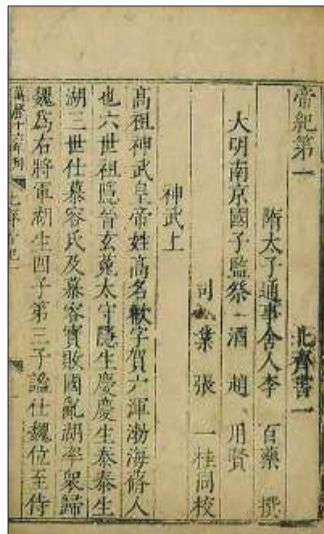 帝紀第一 北齊書一
隋太子通事舍人李 百藥 撰
大明南京國子監祭 酒 趙 用賢
司 業 張 一桂同校
神武上
高祖神武皇帝姓高名歡字賀六渾渤海蓨人
也六世祖隱晉玄菟太守隱生慶慶生泰泰生
湖三世仕慕容氏及慕容寶敗國亂湖率衆歸
魏爲右將軍湖生四子第三子謐仕魏位至侍
萬曆十六年刊